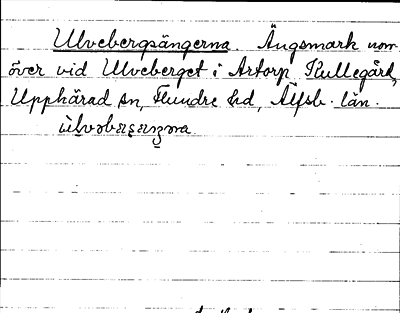 Ulvebergsängerna. Ängsmark norr
över vid Ulveberget i Artorp, Kullegård,
Upphärad sn, Flundre hd, Älfsb. län.